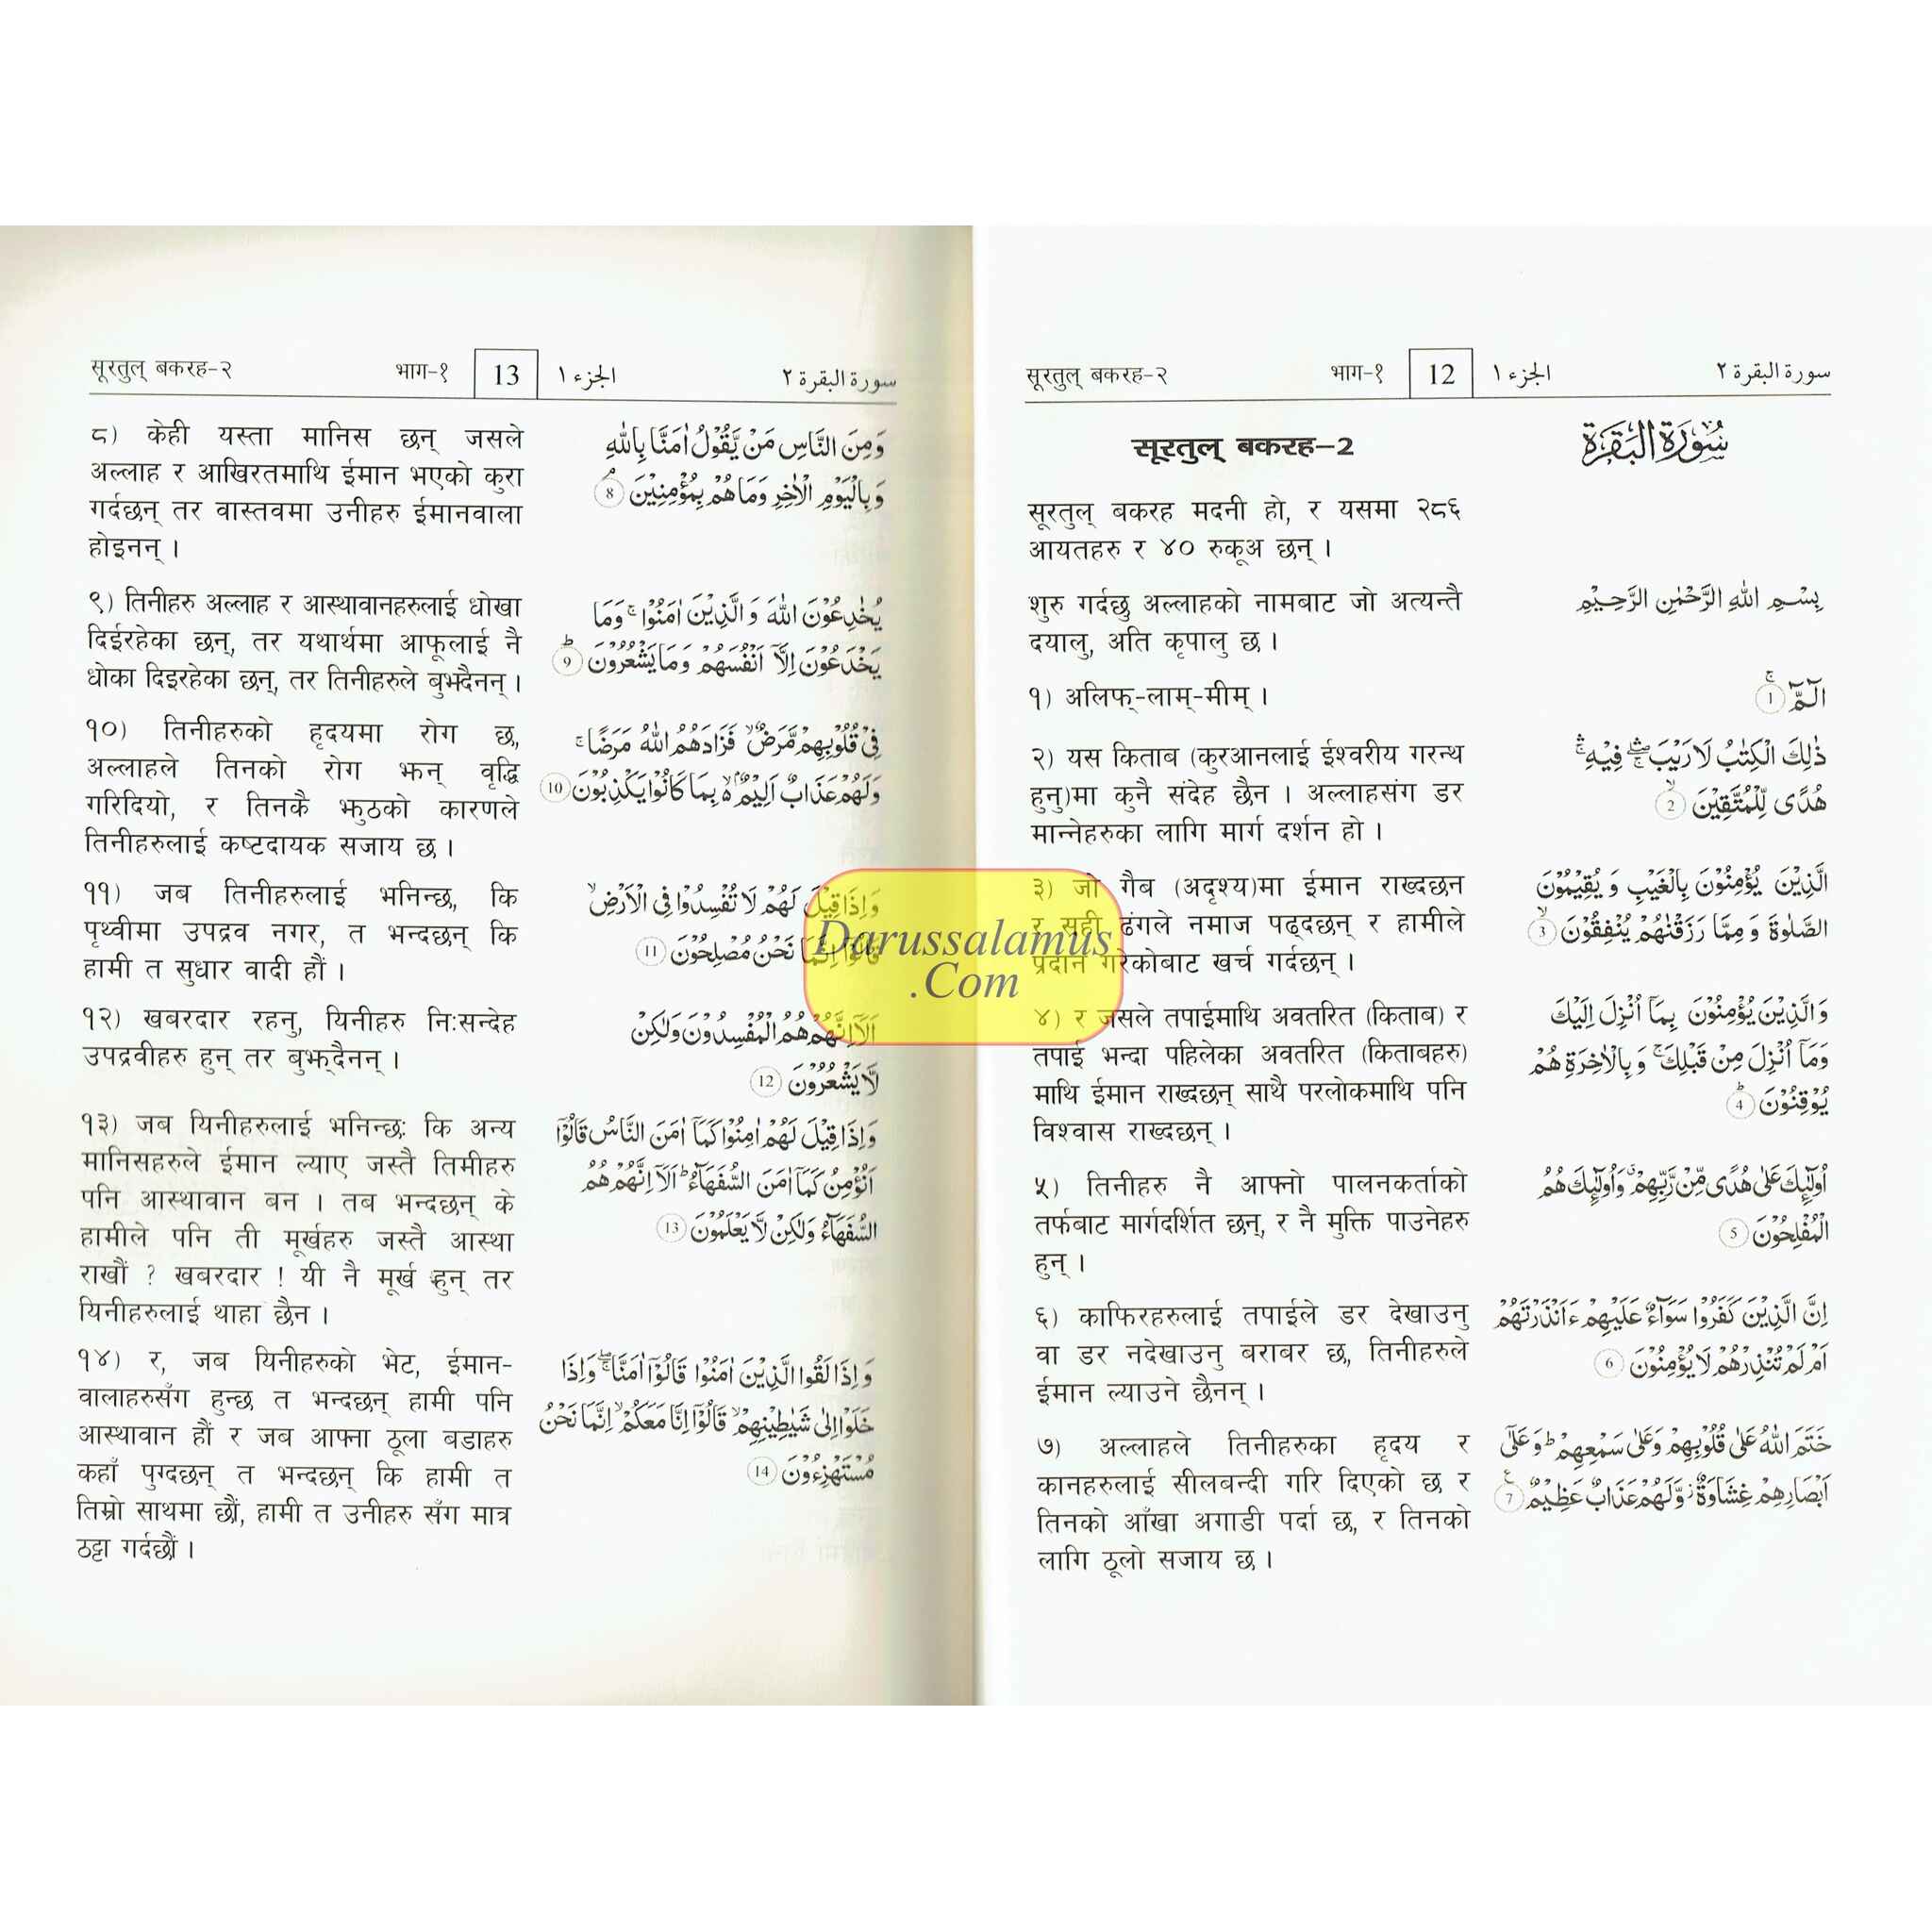 सूरतुल् बकरह-२ भाग-१ 12 الجزء ١ سورة البقرة ٢
सूरतुल् बकरह-2
سُوْرَةُ الْبَقَرَةِ
सूरतुल् बकरह मदनी हो, र यसमा २८६
आयतहरु र ४० रुकूअ छन् ।
शुरु गर्दछु अल्लाहको नामबाट जो अत्यन्तै
दयालु, अति कृपालु छ ।
بِسْمِ اللّٰهِ الرَّحْمٰنِ الرَّحِيْمِ
१) अलिफ्-लाम्-मीम् ।
الٓمّٓ ۚ 1
२) यस किताब (कुरआनलाई ईश्वरीय गरन्थ
हुनु)मा कुनै संदेह छैन । अल्लाहसंग डर
मान्नेहरुका लागि मार्ग दर्शन हो ।
ذٰلِكَ الْكِتٰبُ لَا رَيْبَ ۛ فِيْهِ ۛ
هُدًى لِّلْمُتَّقِيْنَ ۙ 2
३) जो गैब (अदृश्य)मा ईमान राख्दछन
र सही ढंगले नमाज पढ्दछन् र हामीले
प्रदान गरेकोबाट खर्च गर्दछन् ।
الَّذِيْنَ يُؤْمِنُوْنَ بِالْغَيْبِ وَ يُقِيْمُوْنَ
الصَّلٰوةَ وَ مِمَّا رَزَقْنٰهُمْ يُنْفِقُوْنَ ۙ 3
४) र जसले तपाईमाथि अवतरित (किताब) र
तपाई भन्दा पहिलेका अवतरित (किताबहरु)
माथि ईमान राख्दछन् साथै परलोकमाथि पनि
विश्वास राख्दछन् ।
وَالَّذِيْنَ يُؤْمِنُوْنَ بِمَآ اُنْزِلَ اِلَيْكَ
وَمَآ اُنْزِلَ مِنْ قَبْلِكَ ۚ وَبِالْاٰخِرَةِ هُمْ
يُوْقِنُوْنَ ؕ 4
५) तिनीहरु नै आफ्नो पालनकर्ताको
तर्फबाट मार्गदर्शित छन्, र नै मुक्ति पाउनेहरु
हुन् ।
اُولٰٓئِكَ عَلٰى هُدًى مِّنْ رَّبِّهِمْ ۗ وَاُولٰٓئِكَ هُمُ
الْمُفْلِحُوْنَ 5
६) काफिरहरुलाई तपाईले डर देखाउनु
वा डर नदेखाउनु बराबर छ, तिनीहरुले
ईमान ल्याउने छैनन् ।
اِنَّ الَّذِيْنَ كَفَرُوْا سَوَآءٌ عَلَيْهِمْ ءَاَنْذَرْتَهُمْ
اَمْ لَمْ تُنْذِرْهُمْ لَا يُؤْمِنُوْنَ 6
७) अल्लाहले तिनीहरुका हृदय र
कानहरुलाई सीलबन्दी गरि दिएको छ र
तिनको आँखा अगाडी पर्दा छ, र तिनको
लागि ठूलो सजाय छ ।
خَتَمَ اللّٰهُ عَلٰى قُلُوْبِهِمْ وَعَلٰى سَمْعِهِمْ ؕ وَعَلٰٓى
اَبْصَارِهِمْ غِشَاوَةٌ ز وَّلَهُمْ عَذَابٌ عَظِيْمٌ 7
सूरतुल् बकरह-२ भाग-१ 13 الجزء ١ سورة البقرة ٢
८) केही यस्ता मानिस छन् जसले
अल्लाह र आखिरतमाथि ईमान भएको कुरा
गर्दछन् तर वास्तवमा उनीहरु ईमानवाला
होइनन् ।
وَمِنَ النَّاسِ مَنْ يَّقُوْلُ اٰمَنَّا بِاللّٰهِ
وَبِالْيَوْمِ الْاٰخِرِ وَمَا هُمْ بِمُؤْمِنِيْنَ ۘ 8
९) तिनीहरु अल्लाह र आस्थावानहरुलाई धोखा
दिईरहेका छन्, तर यथार्थमा आफूलाई नै
धोका दिइरहेका छन्, तर तिनीहरुले बुझ्दैनन् ।
يُخٰدِعُوْنَ اللّٰهَ وَ الَّذِيْنَ اٰمَنُوْا ۚ وَمَا
يَخْدَعُوْنَ اِلَّآ اَنْفُسَهُمْ وَمَا يَشْعُرُوْنَ ؕ 9
१०) तिनीहरुको हृदयमा रोग छ,
अल्लाहले तिनको रोग झन् वृद्धि
गरिदियो, र तिनकै झुठको कारणले
तिनीहरुलाई कष्टदायक सजाय छ ।
فِيْ قُلُوْبِهِمْ مَّرَضٌ ۙ فَزَادَهُمُ اللّٰهُ مَرَضًا ۚ
وَلَهُمْ عَذَابٌ اَلِيْمٌۢ ۙ بِمَا كَانُوْا يَكْذِبُوْنَ 10
११) जब तिनीहरुलाई भनिन्छ, कि
पृथ्वीमा उपद्रव नगर, त भन्दछन् कि
हामी त सुधार वादी हौं ।
وَاِذَا قِيْلَ لَهُمْ لَا تُفْسِدُوْا فِي الْاَرْضِ ۙ
قَالُوْٓا اِنَّمَا نَحْنُ مُصْلِحُوْنَ 11
१२) खबरदार रहनु, यिनीहरु नि:सन्देह
उपद्रवीहरु हुन् तर बुझ्दैनन् ।
اَلَآ اِنَّهُمْ هُمُ الْمُفْسِدُوْنَ وَلٰكِنْ
لَّا يَشْعُرُوْنَ 12
१३) जब यिनीहरुलाई भनिन्छ: कि अन्य
मानिसहरुले ईमान ल्याए जस्तै तिमीहरु
पनि आस्थावान बन । तब भन्दछन् के
हामीले पनि ती मूर्खहरु जस्तै आस्था
राखौं ? खबरदार ! यी नै मूर्ख हुन् तर
यिनीहरुलाई थाहा छैन ।
وَاِذَا قِيْلَ لَهُمْ اٰمِنُوْا كَمَآ اٰمَنَ النَّاسُ قَالُوْٓا
اَنُؤْمِنُ كَمَآ اٰمَنَ السُّفَهَآءُ ؕ اَلَآ اِنَّهُمْ هُمُ
السُّفَهَآءُ وَلٰكِنْ لَّا يَعْلَمُوْنَ 13
१४) र, जब यिनीहरुको भेट, ईमान-
वालाहरुसँग हुन्छ त भन्दछन् हामी पनि
आस्थावान हौं र जब आफ्ना ठूला बडाहरु
कहाँ पुग्दछन् त भन्दछन् कि हामी त
तिम्रो साथमा छौं, हामी त उनीहरु सँग मात्र
ठट्टा गर्दछौं ।
وَاِذَا لَقُوا الَّذِيْنَ اٰمَنُوْا قَالُوْٓا اٰمَنَّا ۖۚ وَاِذَا
خَلَوْا اِلٰى شَيٰطِيْنِهِمْ ۙ قَالُوْٓا اِنَّا مَعَكُمْ ۙ اِنَّمَا نَحْنُ
مُسْتَهْزِءُوْنَ 14
Darussalamus
.Com